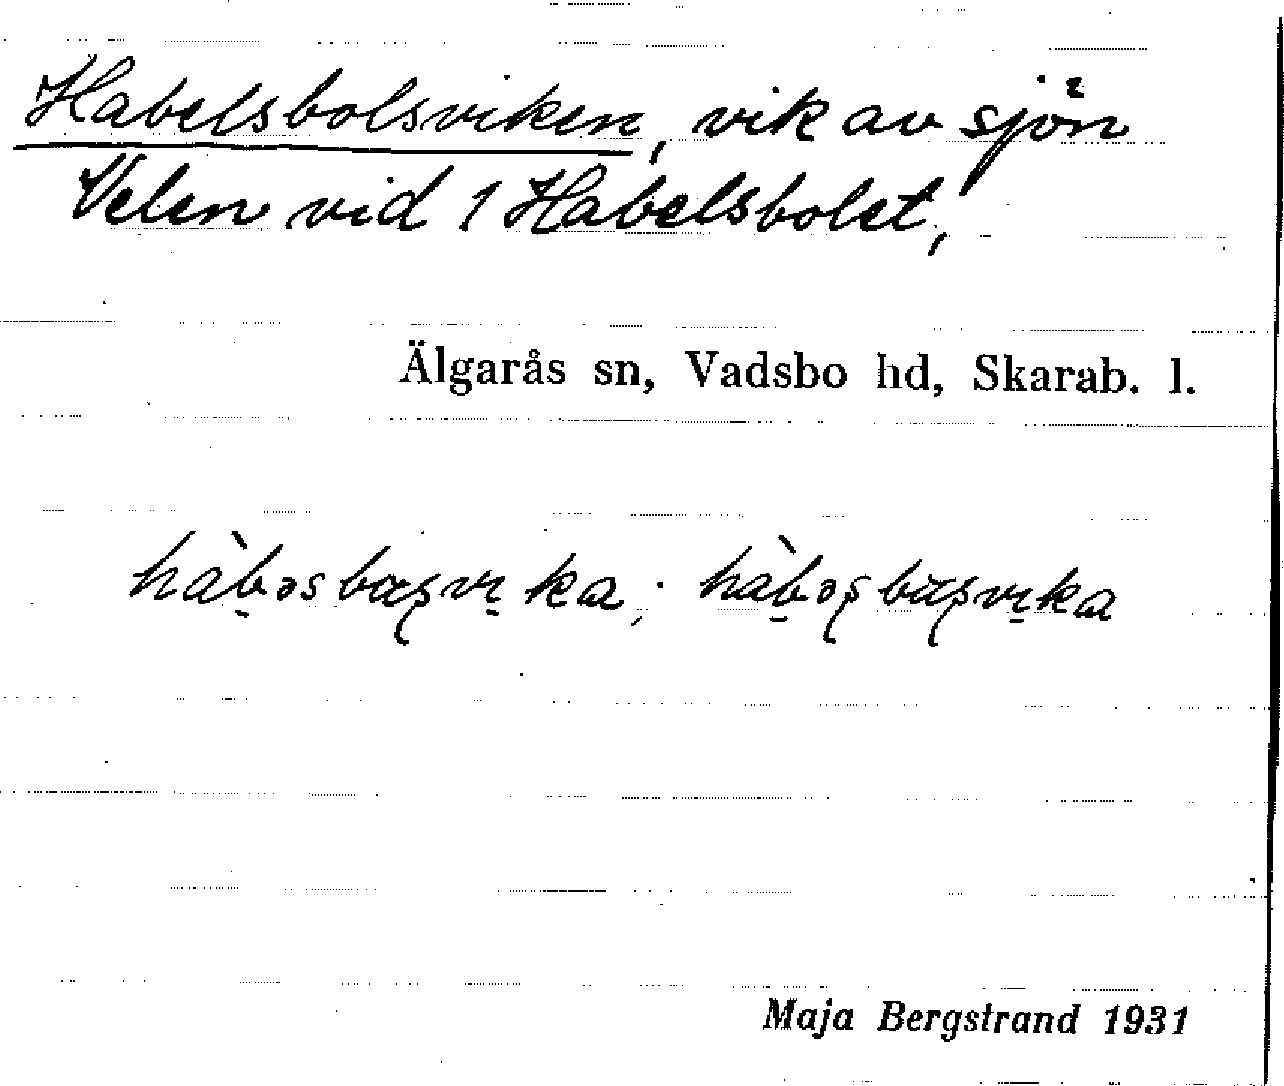 Habelsbolsviken, vik av sjön
Velen vid 1 Habelsbolet,
Älgarås sn, Vadsbo hd, Skarab. l.
Maja Bergstrand 1931